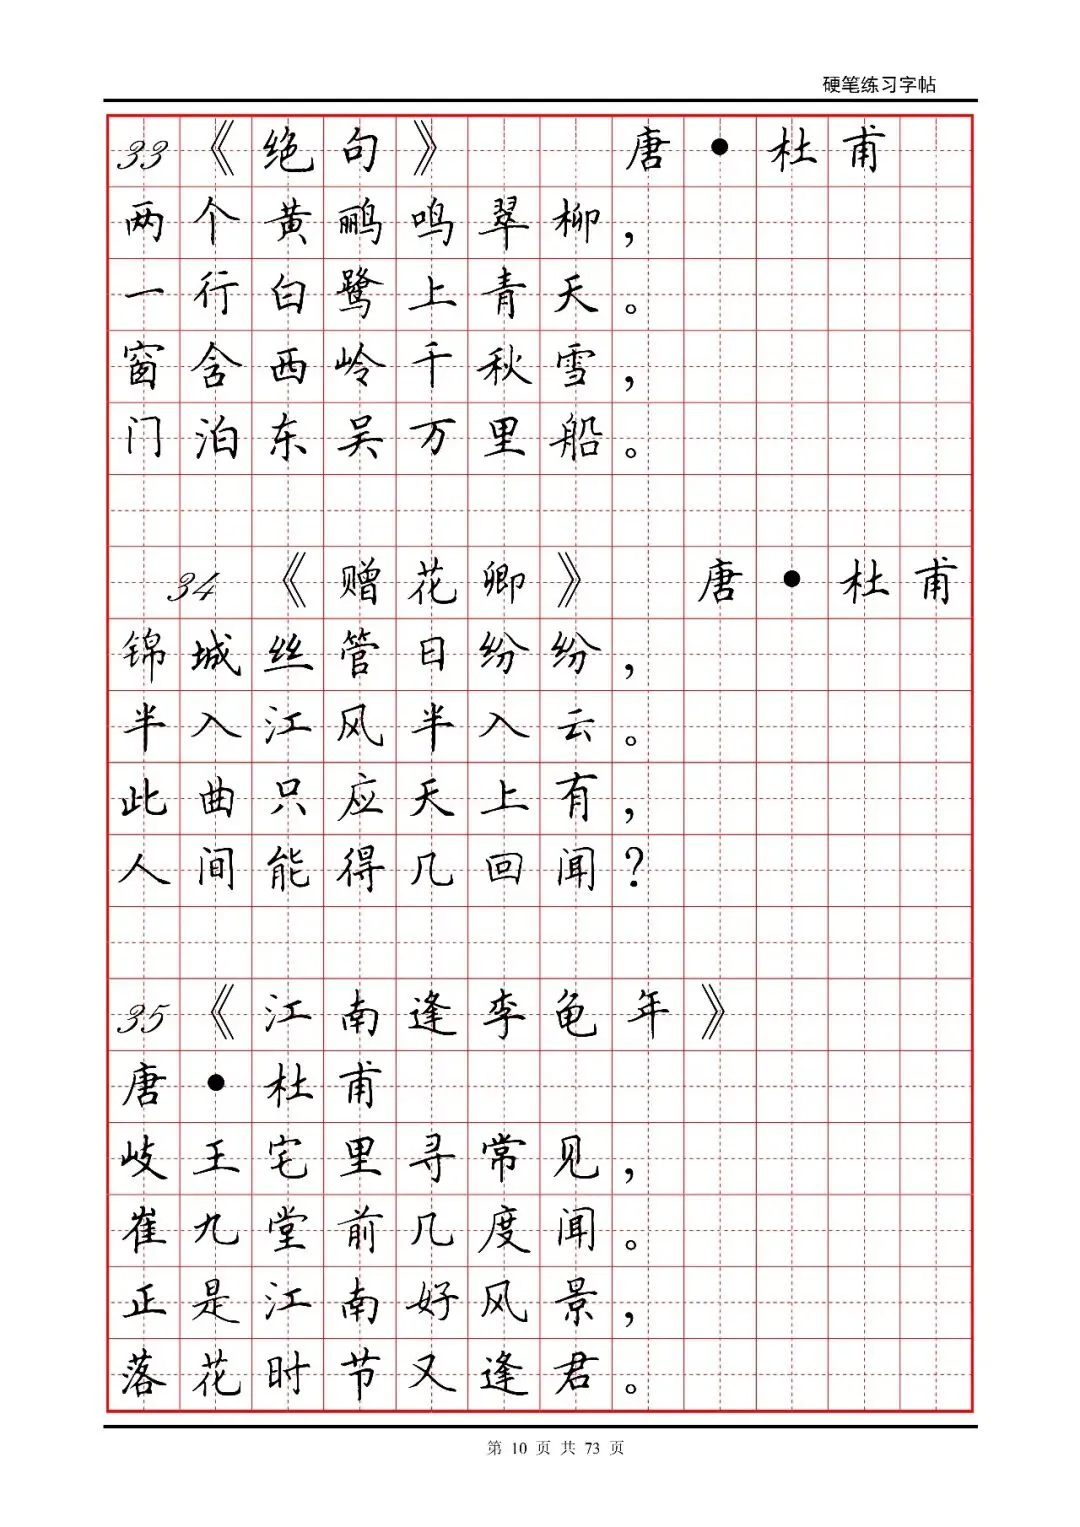 硬笔练习字帖
33《绝句》 唐•杜甫
两个黄鹂鸣翠柳，
一行白鹭上青天。
窗含西岭千秋雪，
门泊东吴万里船。
34《赠花卿》 唐•杜甫
锦城丝管日纷纷，
半入江风半入云。
此曲只应天上有，
人间能得几回闻？
35《江南逢李龟年》
唐•杜甫
岐王宅里寻常见，
崔九堂前几度闻。
正是江南好风景，
落花时节又逢君。
第 10 页 共 73 页